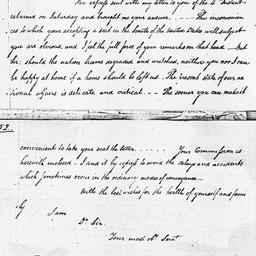 express sent with my letter to you of the 2d instant
returned on Saturday and brought me your answer. - - - The inconvenien
ces to which your accepting a seat in the Senate of the United States will subject
you are obvious; and I feel the full force of your remarks on that head - But
Sir; should the nation become degraded and wretched, neither you nor I can
be happy at home if a home should be left us. - The present state of our na
tional affairs is delicate and critical. - - - The sooner you can make it
convenient to take your seat the better. . . . . . Your Commission is
herewith enclosed - I send it by express to avoid the delays and accidents
which sometimes occur in the ordinary modes of conveyance -
With the best wishes for the health of yourself and fami
ly I am
Dr Sir.
Your most obt. Servt